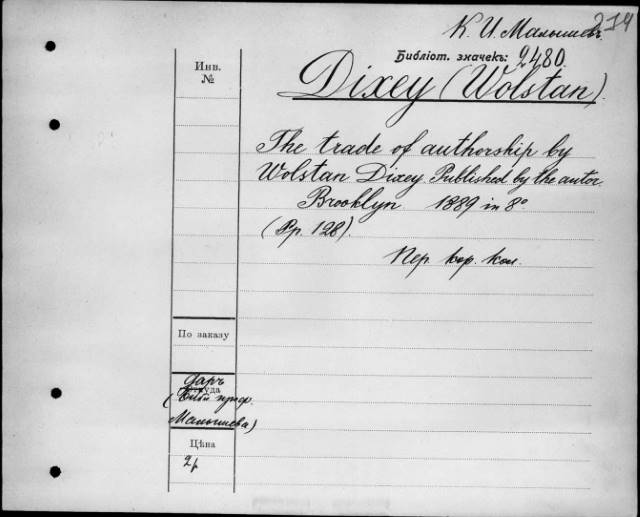 К. И. Малышевъ. 214
Библіот. значекъ: 2480.
Dixey (Wolstan).
Инв.
№
The trade of authorship by
Wolstan Dixey Published by the autor
Brooklyn 1889 in 8º
(Pp. 128).
Пер. кор. кол.
По заказу
даръ
Откуда
(Библ. проф.
Малышева)
Цѣна
2р